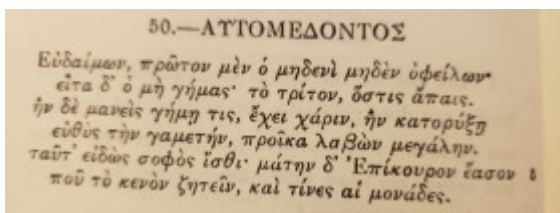 50.—ΑΥΤΟΜΕΔΟΝΤΟΣ
Εὐδαίμων, πρῶτον μὲν ὁ μηδενὶ μηδὲν ὀφείλων·
εἶτα δ’ ὁ μὴ γήμας· τὸ τρίτον, ὅστις ἄπαις.
ἢν δὲ μανεὶς γήμῃ τις, ἔχει χάριν, ἢν κατορύξῃ
εὐθὺς τὴν γαμετήν, προῖκα λαβὼν μεγάλην.
ταῦτ’ εἰδὼς σοφὸς ἴσθι· μάτην δ’ Ἐπίκουρον ἔασον 5
ποῦ τὸ κενὸν ζητεῖν, καὶ τίνες αἱ μονάδες.